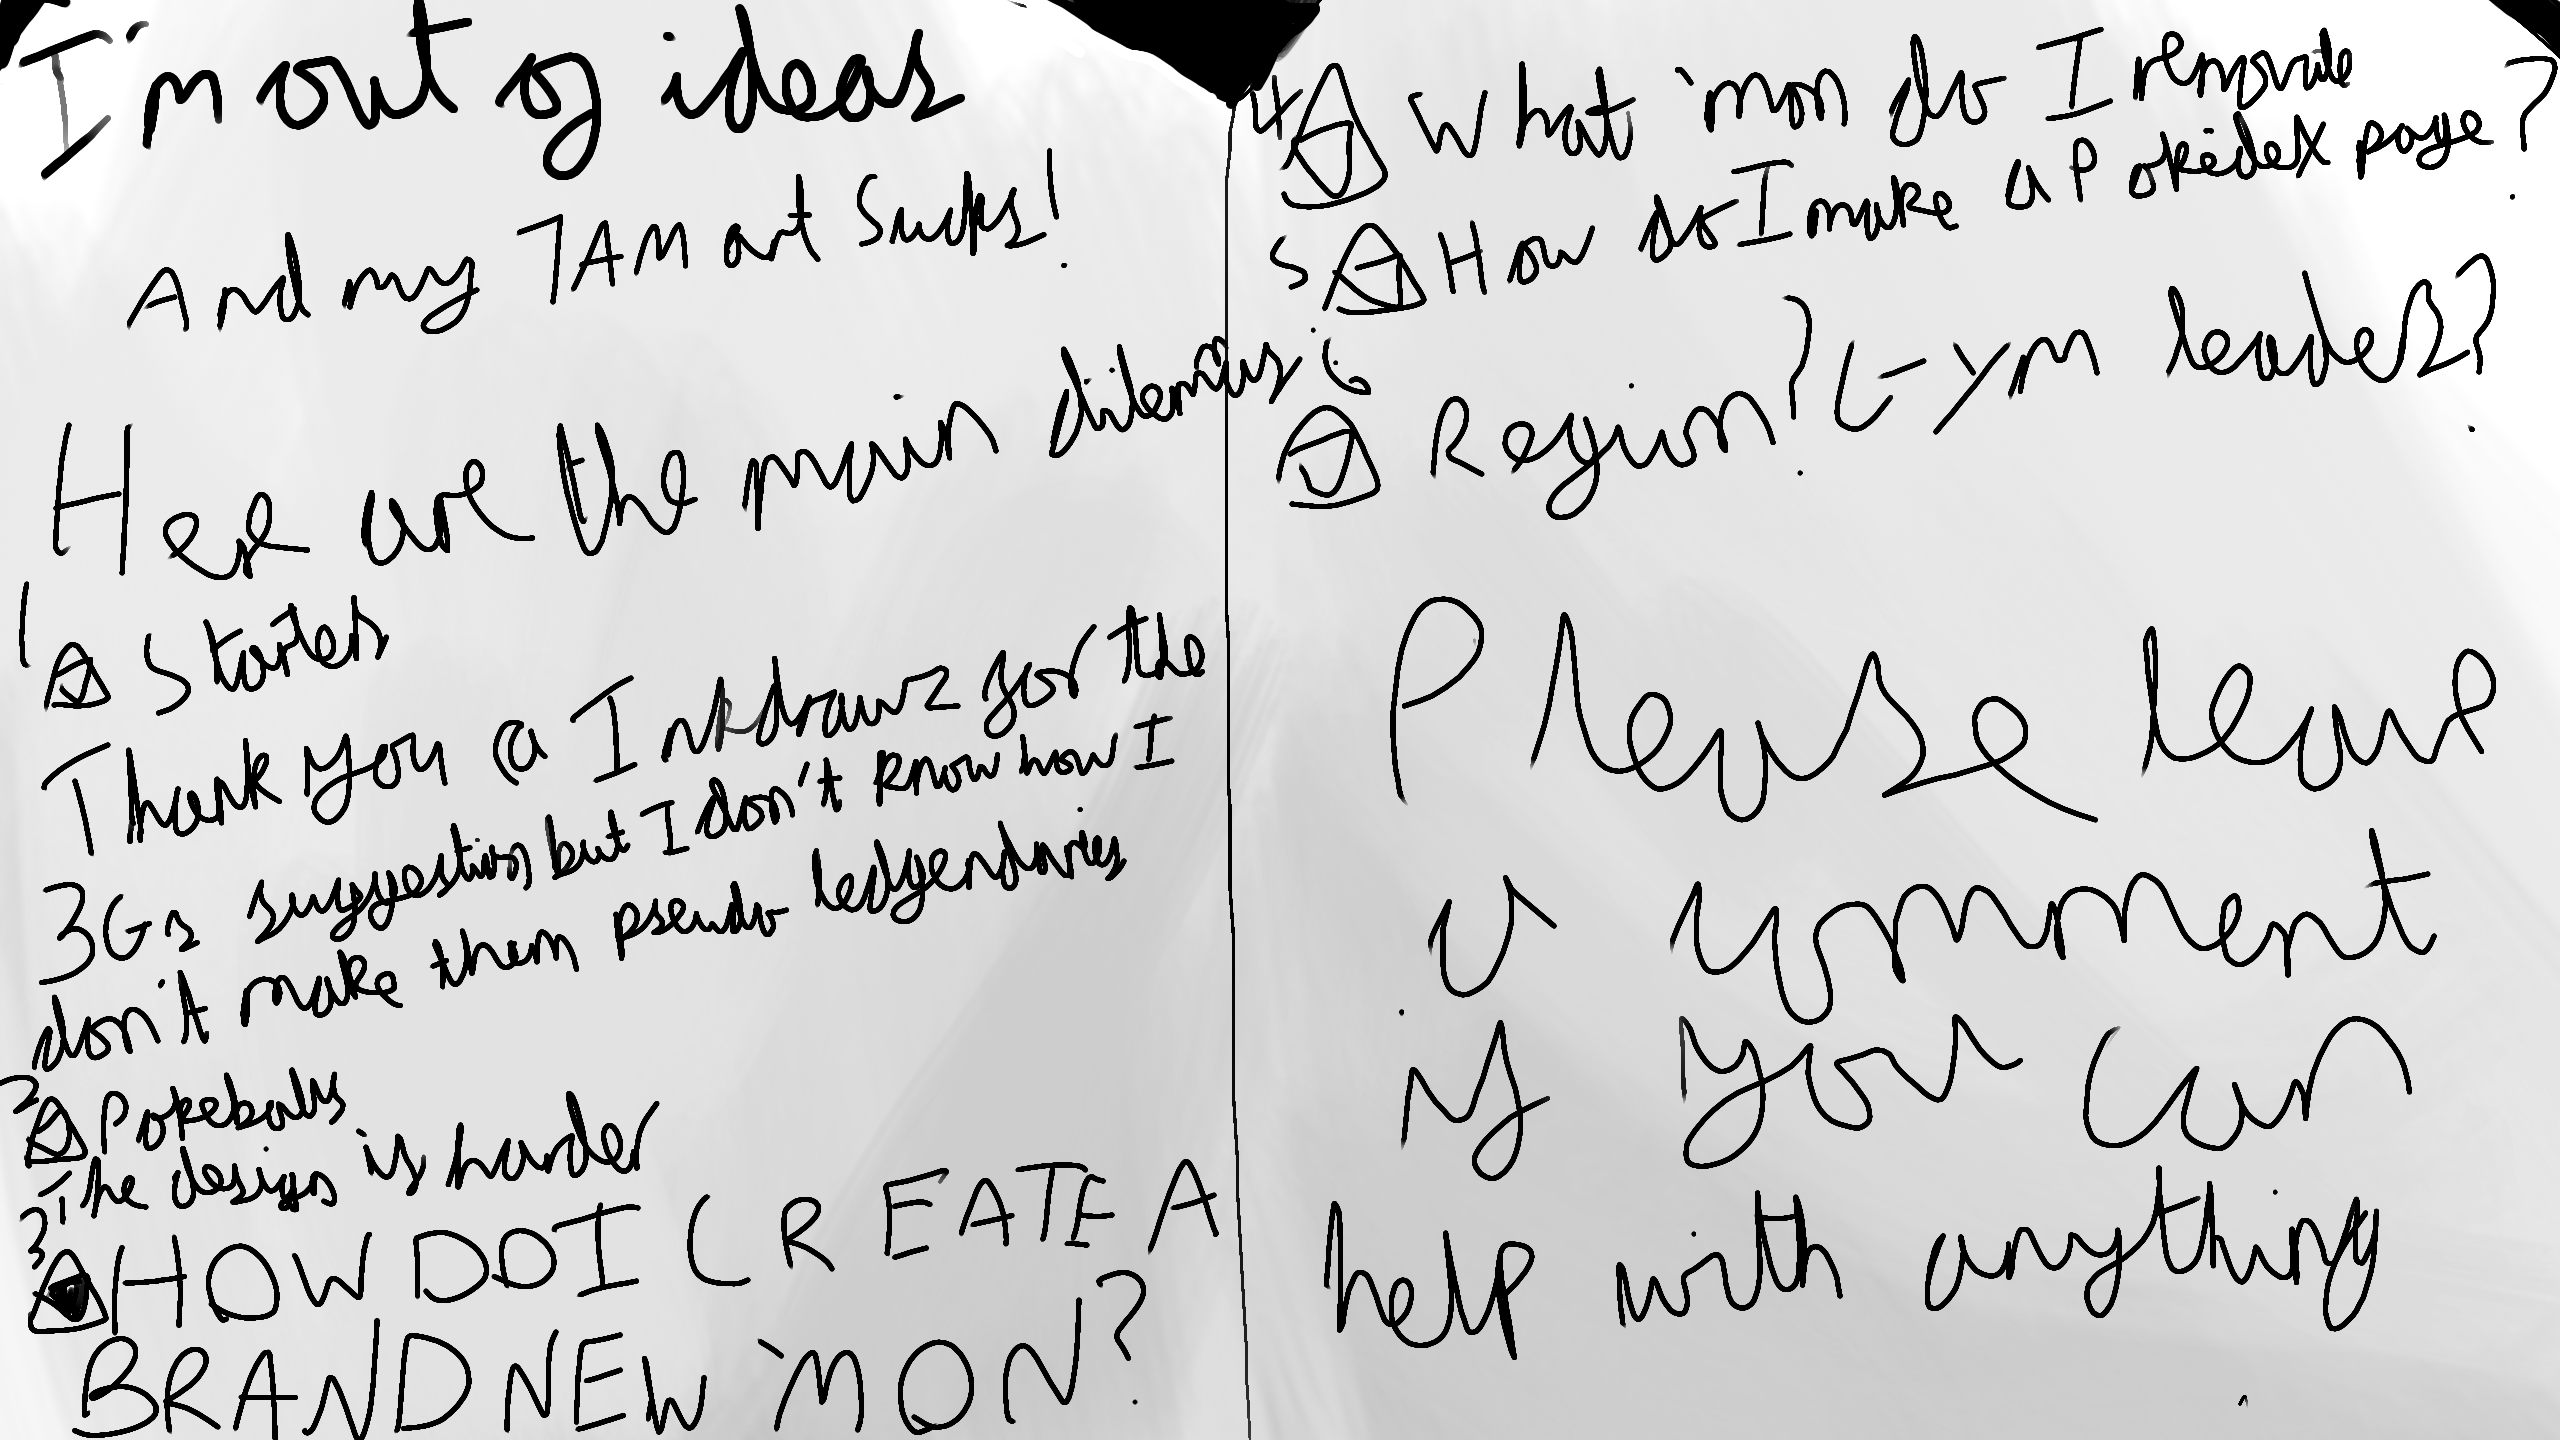 I'm out of ideas
And my 7AM art Sucks!
Here are the main dilemmas
1 Starters
Thank you @Inkdrawz for the
3Gs suggestion but I don't know how I
don't make them pseudo ledgendaries
2 Pokeballs
The design is harder
3 HOW DO I CREATE A
BRAND NEW 'MON?
4 What 'mon do I renovate
5 How do I make a Pokédex page?
6
Region? Gym leaderz?
Please leave
a comment
if you can
help with anything